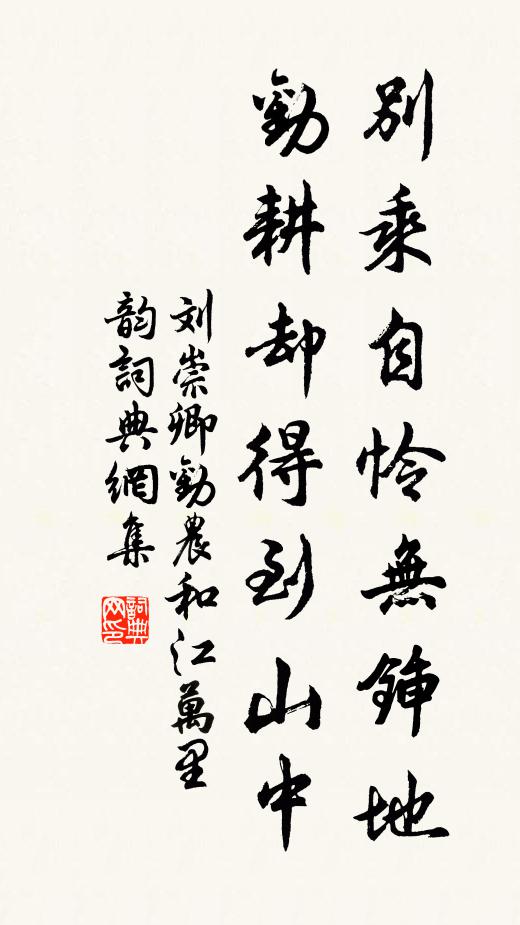 別乘自怜無鍤地
勸耕却得到山中
刘崇卿勸農和江萬里
韵詞典網集
詞典网印